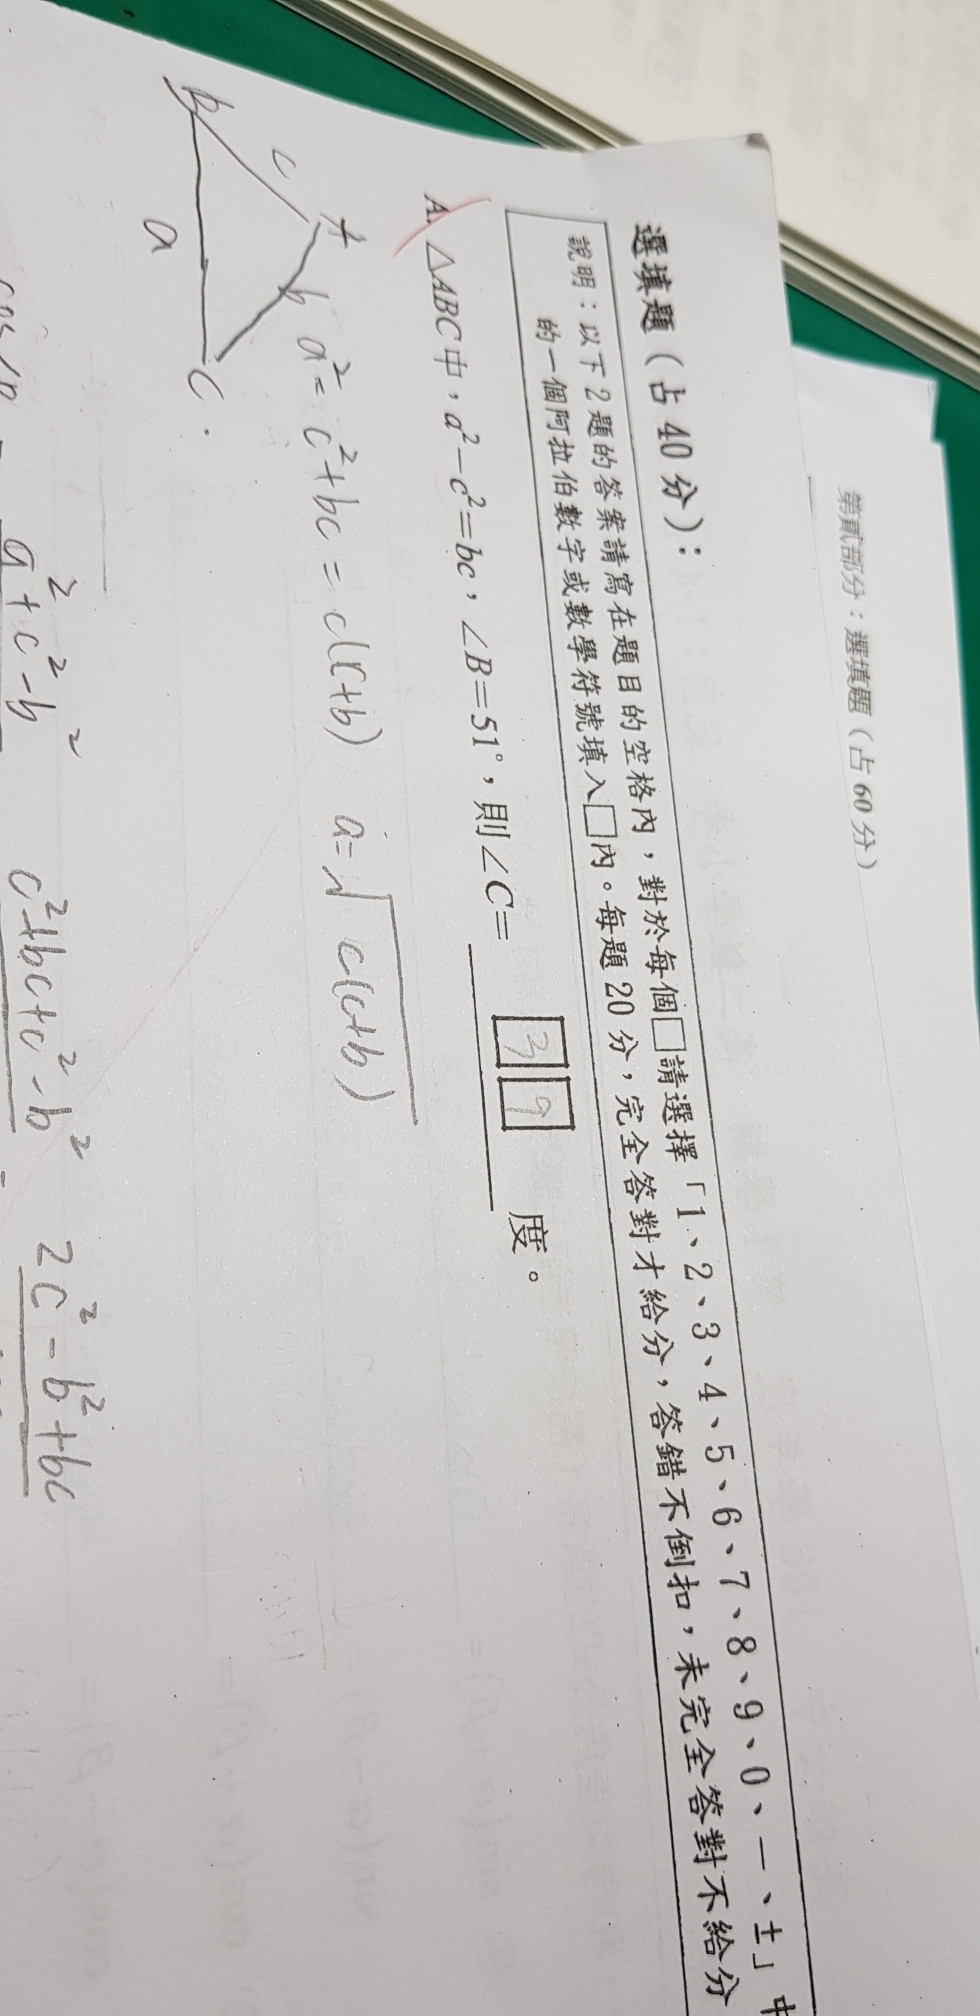 第貳部分：選填題（占 60 分）
選填題（占 40 分）：
說明：以下 2 題的答案請寫在題目的空格內，對於每個□請選擇「1、2、3、4、5、6、7、8、9、0、－、±」中
的一個阿拉伯數字或數學符號填入□內。每題 20 分，完全答對才給分，答錯不倒扣，未完全答對不給分
A. △ABC中，a²－c²＝bc，∠B＝51°，則∠C＝ 39 度。
A
c b
B a C
a²= c²+bc = c(c+b) a=√c(c+b)
a²+c²-b² c²+bc+c²-b² 2c²-b²+bc